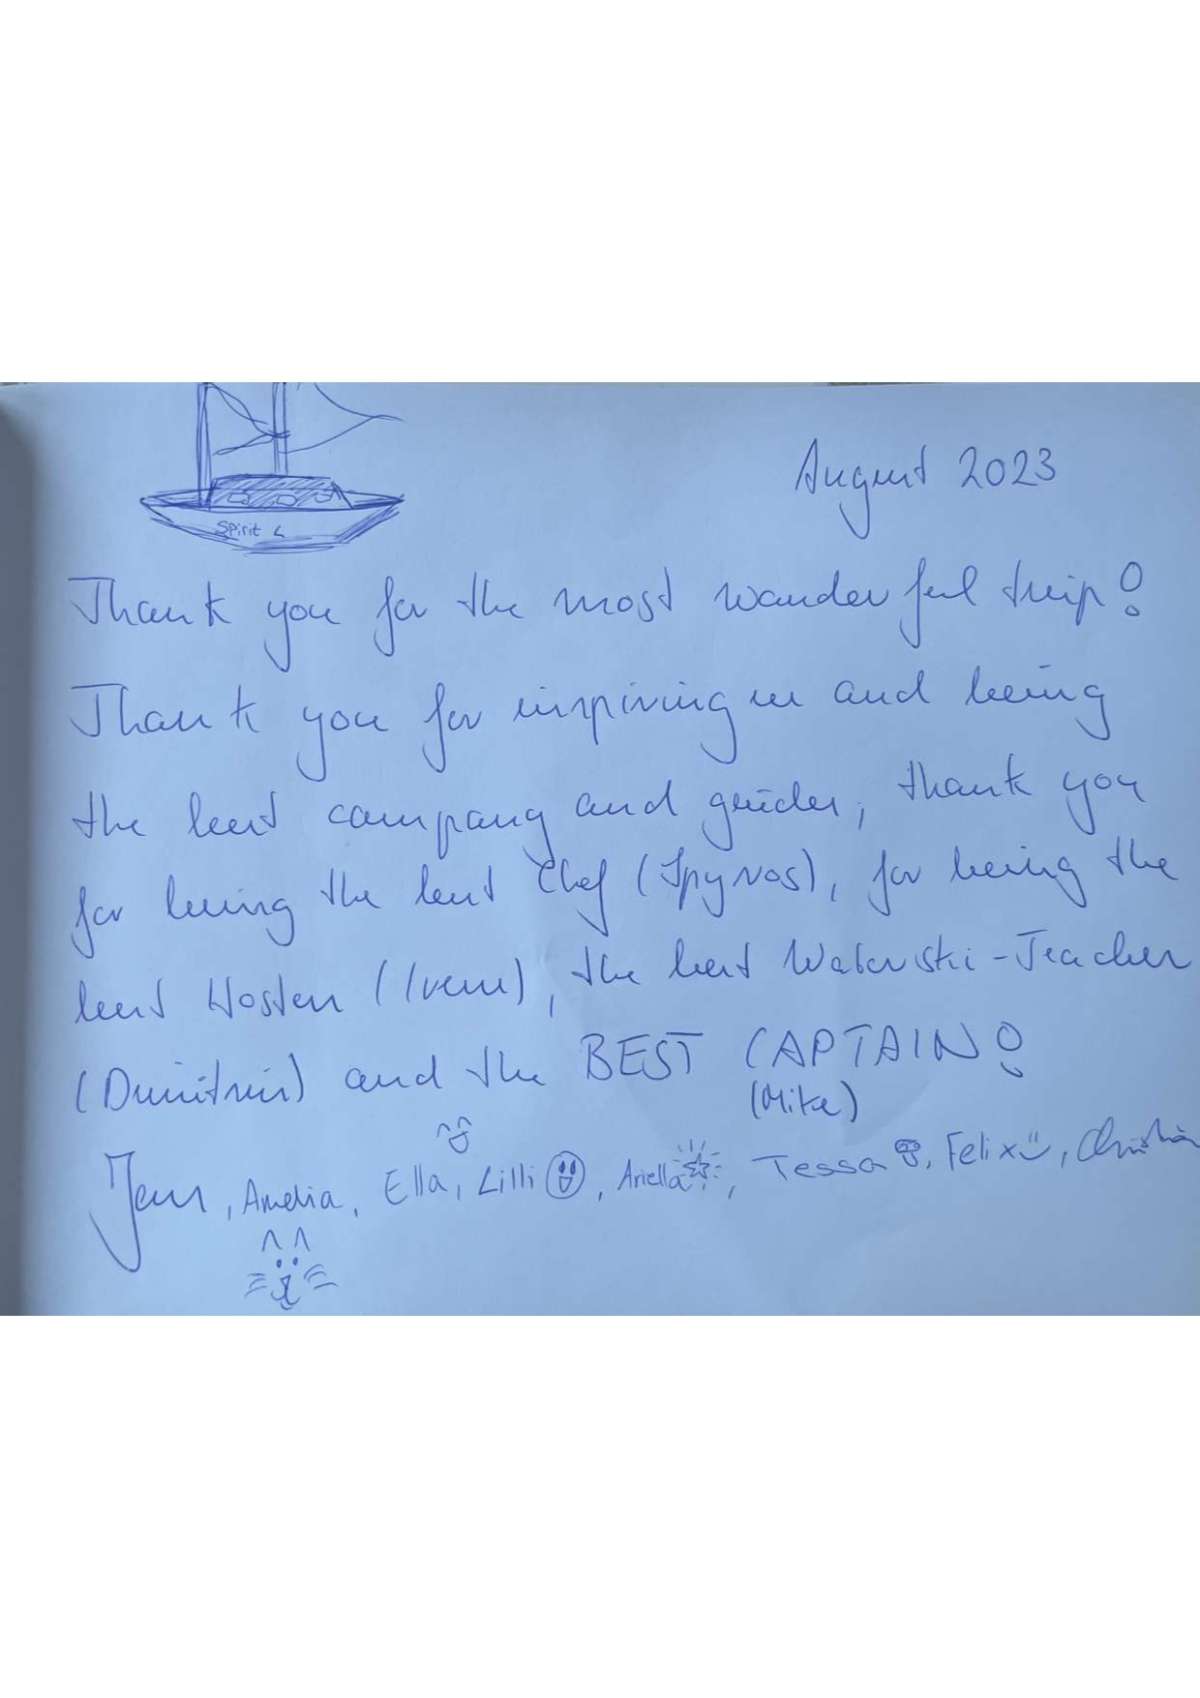 Spirit L
August 2023
Thank you for the most wonderful trip!
Thank you for inspiring us and being
the best company and guides, thank you
for being the best Chef (Spyros), for being the
best Hostess (Irene), the best Waterski-Teacher
(Dimitris) and the BEST CAPTAIN!
(Mike)
Amelia, Ella, Lilli, Ariella, Tessa, Felix, Christian